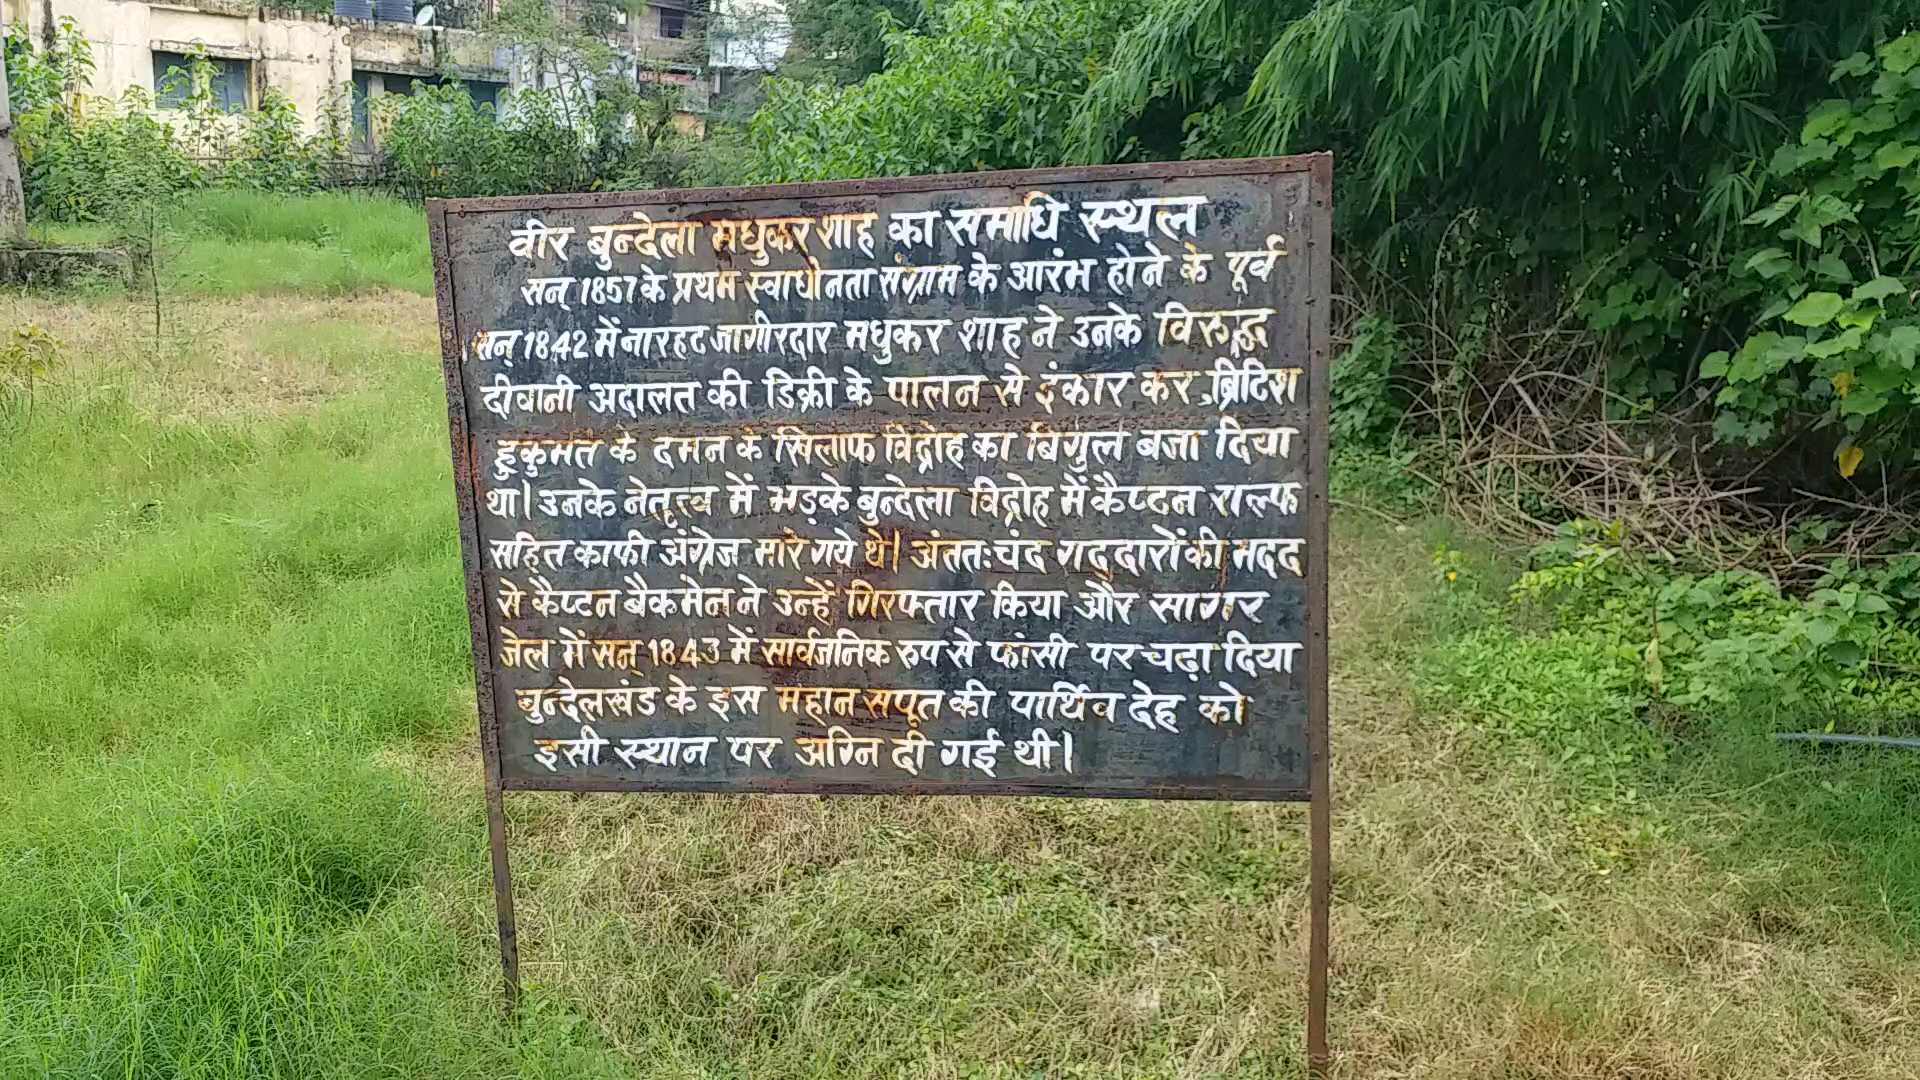 वीर बुन्देला मधुकर शाह का समाधि स्थल
सन् 1857 के प्रथम स्वाधीनता संग्राम के आरंभ होने के पूर्व
सन् 1842 में नारहट जागीरदार मधुकर शाह ने उनके विरुद्ध
दीवानी अदालत की डिक्री के पालन से इंकार कर ब्रिटिश
हुकुमत के दमन के खिलाफ विद्रोह का बिगुल बजा दिया
था। उनके नेतृत्व में भड़के बुन्देला विद्रोह में कैप्टन राल्फ
सहित काफी अंग्रेज मारे गये थे। अंततः चंद गद्दारों की मदद
से कैप्टन बैकमेन ने उन्हें गिरफ्तार किया और सागर
जेल में सन् 1843 में सार्वजनिक रुप से फांसी पर चढ़ा दिया
बुन्देलखंड के इस महान सपूत की पार्थिव देह को
इसी स्थान पर अग्नि दी गई थी।